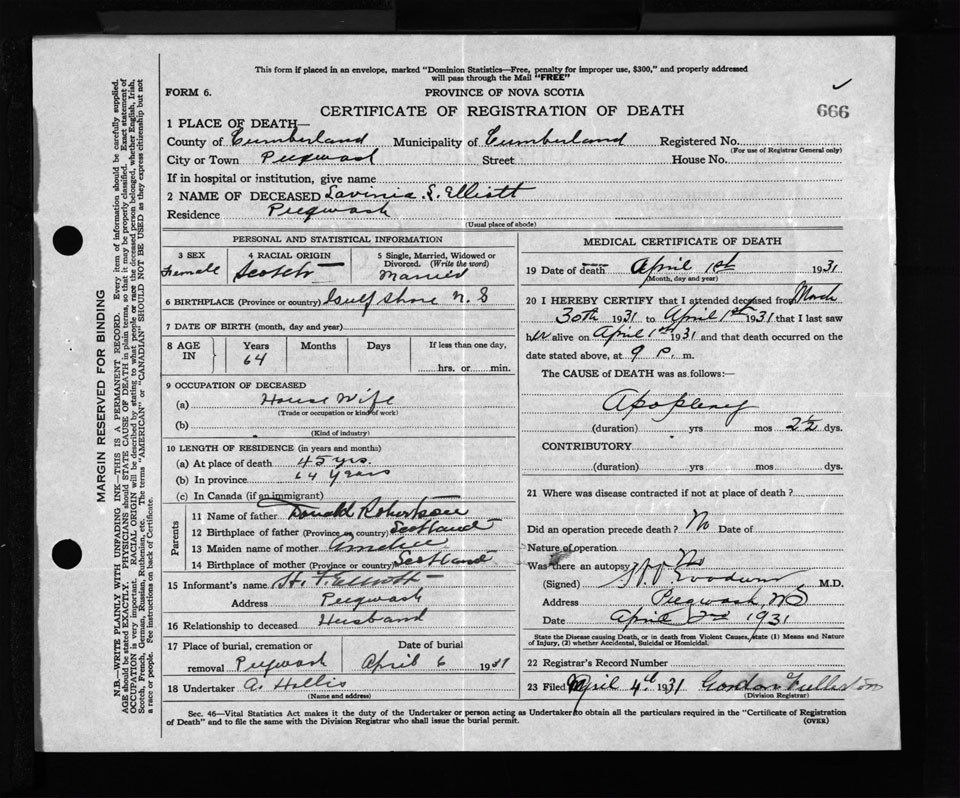 This form if placed in an envelope, marked "Dominion Statistics—Free, penalty for improper use, $300," and properly addressed
will pass through the Mail "FREE"
FORM 6.
PROVINCE OF NOVA SCOTIA
666
CERTIFICATE OF REGISTRATION OF DEATH
1 PLACE OF DEATH—
County of Cumberland Municipality of Cumberland Registered No.
(For use of Registrar General only)
City or Town Pugwash Street House No.
If in hospital or institution, give name
2 NAME OF DECEASED Lavinia S. Elliott
Residence Pugwash
(Usual place of abode)
PERSONAL AND STATISTICAL INFORMATION
3 SEX 4 RACIAL ORIGIN 5 Single, Married, Widowed or
Divorced. (Write the word)
Female Scotch Married
6 BIRTHPLACE (Province or country) Gulf Shore N.S
7 DATE OF BIRTH (month, day and year)
8 AGE IN Years Months Days If less than one day,
64 hrs. or min.
9 OCCUPATION OF DECEASED
(a) House Wife
(Trade or occupation or kind of work)
(b)
(Kind of industry)
10 LENGTH OF RESIDENCE (in years and months)
(a) At place of death 45 yrs.
(b) In province 64 years
(c) In Canada (if an immigrant)
Parents
11 Name of father Donald Robertson
12 Birthplace of father (Province or country) Scotland
13 Maiden name of mother
14 Birthplace of mother (Province or country) Scotland
15 Informant's name H. F. Elliott
Address Pugwash
16 Relationship to deceased Husband
17 Place of burial, cremation or Date of burial
removal Pugwash April 6 1931
18 Undertaker A. Hollis
(Name and address)
MEDICAL CERTIFICATE OF DEATH
19 Date of death April 1st 1931
(Month, day and year)
20 I HEREBY CERTIFY that I attended deceased from March
30th 1931 to April 1st 1931 that I last saw
her alive on April 1st 1931 and that death occurred on the
date stated above, at 9 P. m.
The CAUSE of DEATH was as follows:—
Apoplexy
(duration) yrs mos 2½ dys.
CONTRIBUTORY
(duration) yrs mos dys.
21 Where was disease contracted if not at place of death?
Did an operation precede death? No Date of
Nature of operation
Was there an autopsy No
(Signed) Goodwin M.D.
Address Pugwash, NS
Date April 2nd 1931
State the Disease causing Death, or in death from Violent Causes, state (1) Means and Nature
of Injury, (2) whether Accidental, Suicidal or Homicidal.
22 Registrar's Record Number
23 Filed April 4th 1931 Gordon Fullerton
(Division Registrar)
Sec. 46—Vital Statistics Act makes it the duty of the Undertaker or person acting as Undertaker to obtain all the particulars required in the "Certificate of Registration
of Death" and to file the same with the Division Registrar who shall issue the burial permit. (OVER)
MARGIN RESERVED FOR BINDING
N.B.—WRITE PLAINLY WITH UNFADING INK—THIS IS A PERMANENT RECORD. Every item of information should be carefully supplied.
AGE should be stated EXACTLY. PHYSICIANS should STATE CAUSE OF DEATH in plain terms, so that it may be properly classified. Exact statement of
OCCUPATION is very important. RACIAL ORIGIN will be described by stating to what people or race the deceased person belonged, whether English, Irish,
Scotch, French, German, Russian, Ruthenian, etc. The terms "AMERICAN" or "CANADIAN" SHOULD NOT BE USED as they express citizenship but not
a race or people. See instructions on back of Certificate.